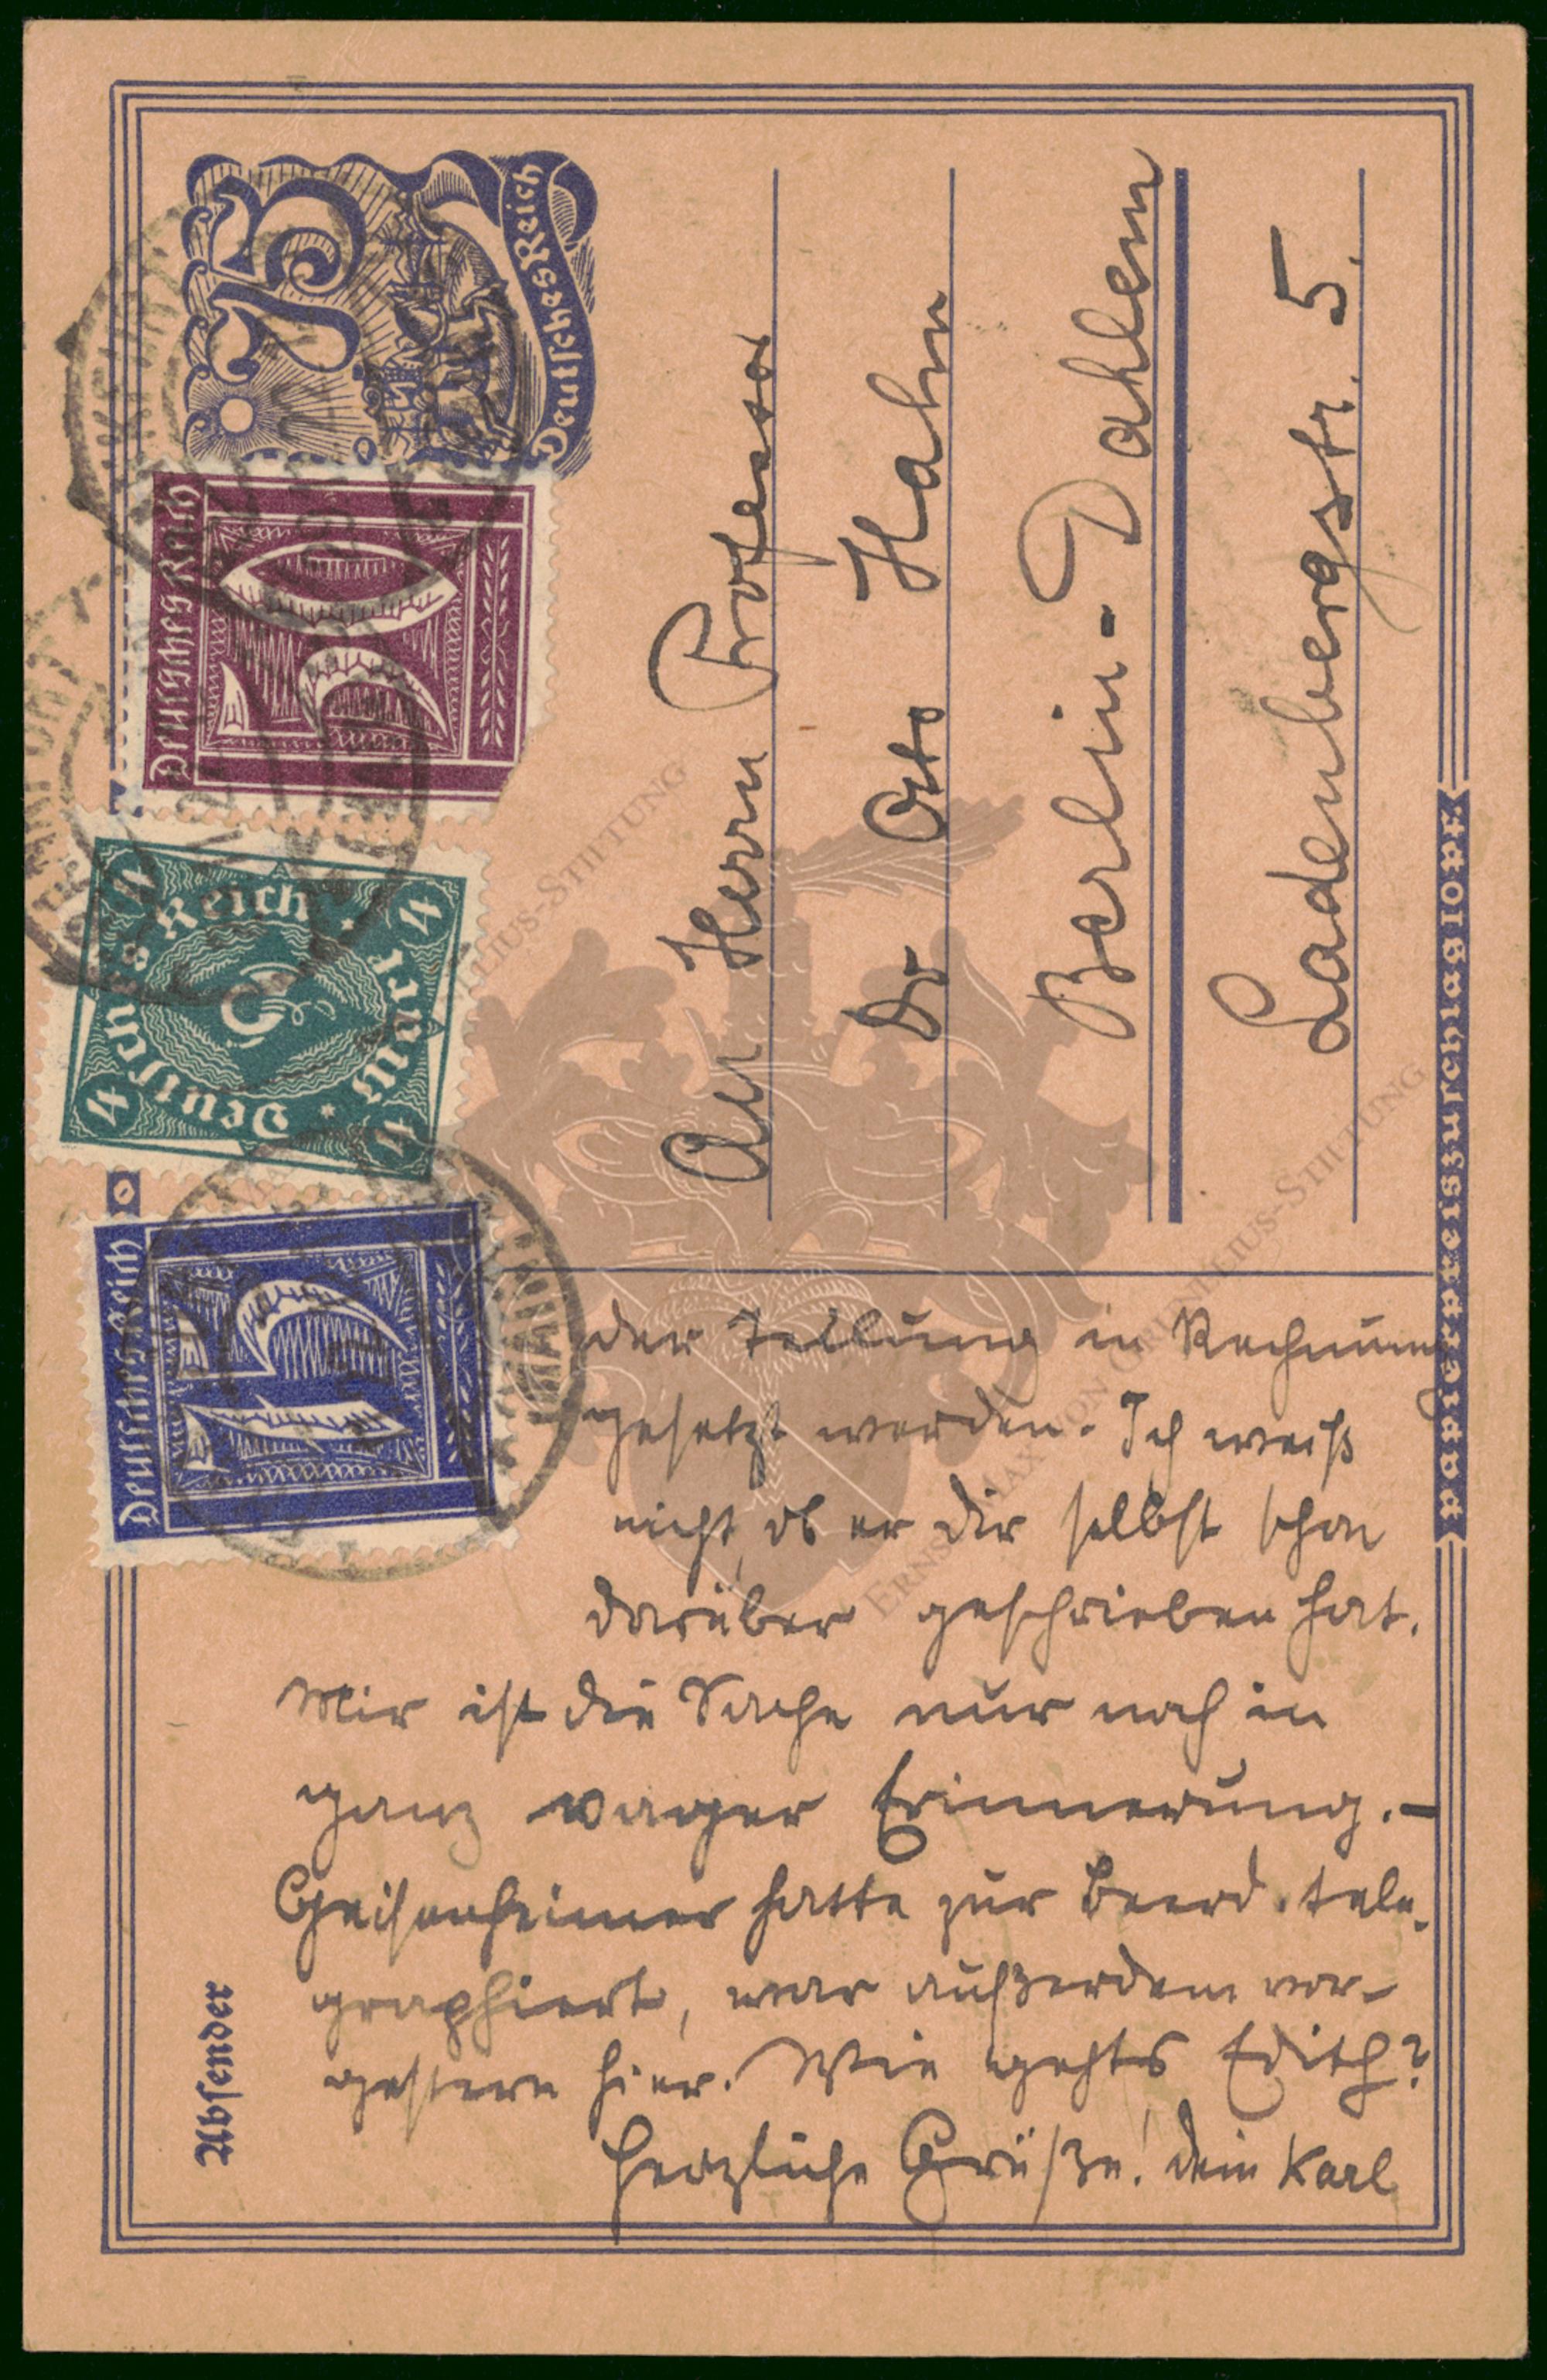 Deutsches Reich
75
Deutsches Reich
50
Deutsches Reich
4 Mark
4
4
4
4
Deutsches Reich
15
An Herrn Professor
Dr Otto Hahn
Berlin-Dahlem
Ladenbergstr. 5.
der Teilung in Rechnung
gesetzt werden. Ich weiß
nicht, ob er Dir selbst schon
darüber geschrieben hat.
Mir ist die Sache nur noch in
ganz vager Erinnerung. –
Geisenheimer hatte zur Beerd. tele-
graphiert, war außerdem vor-
gestern hier. Wie gehts Edith?
Herzliche Grüße! Dein Karl
Absender
ERNST MAX VON GRUNELIUS-STIFTUNG